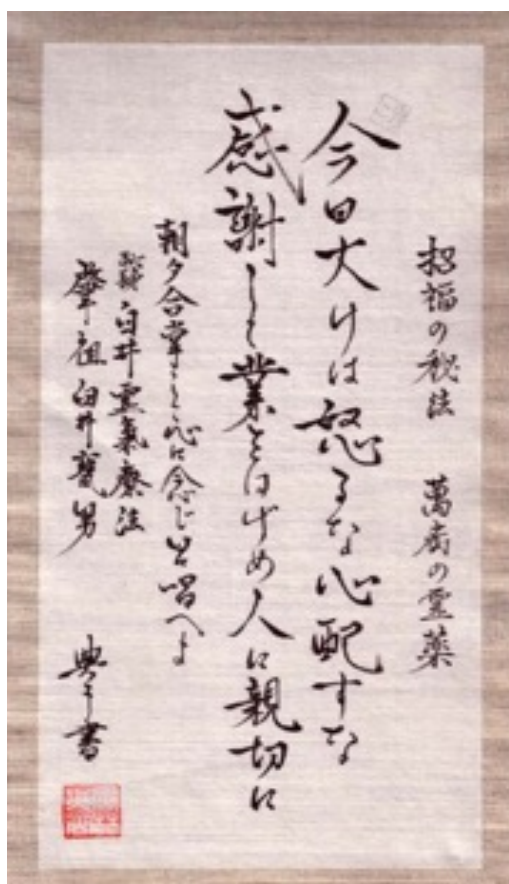 招福の秘法 萬病の霊薬
今日丈けは怒るな心配すな
感謝して業をはげめ人に親切に
朝夕合掌して心に念じ口に唱へよ
心身改善 臼井霊氣療法
肇祖 臼井甕男
典子書